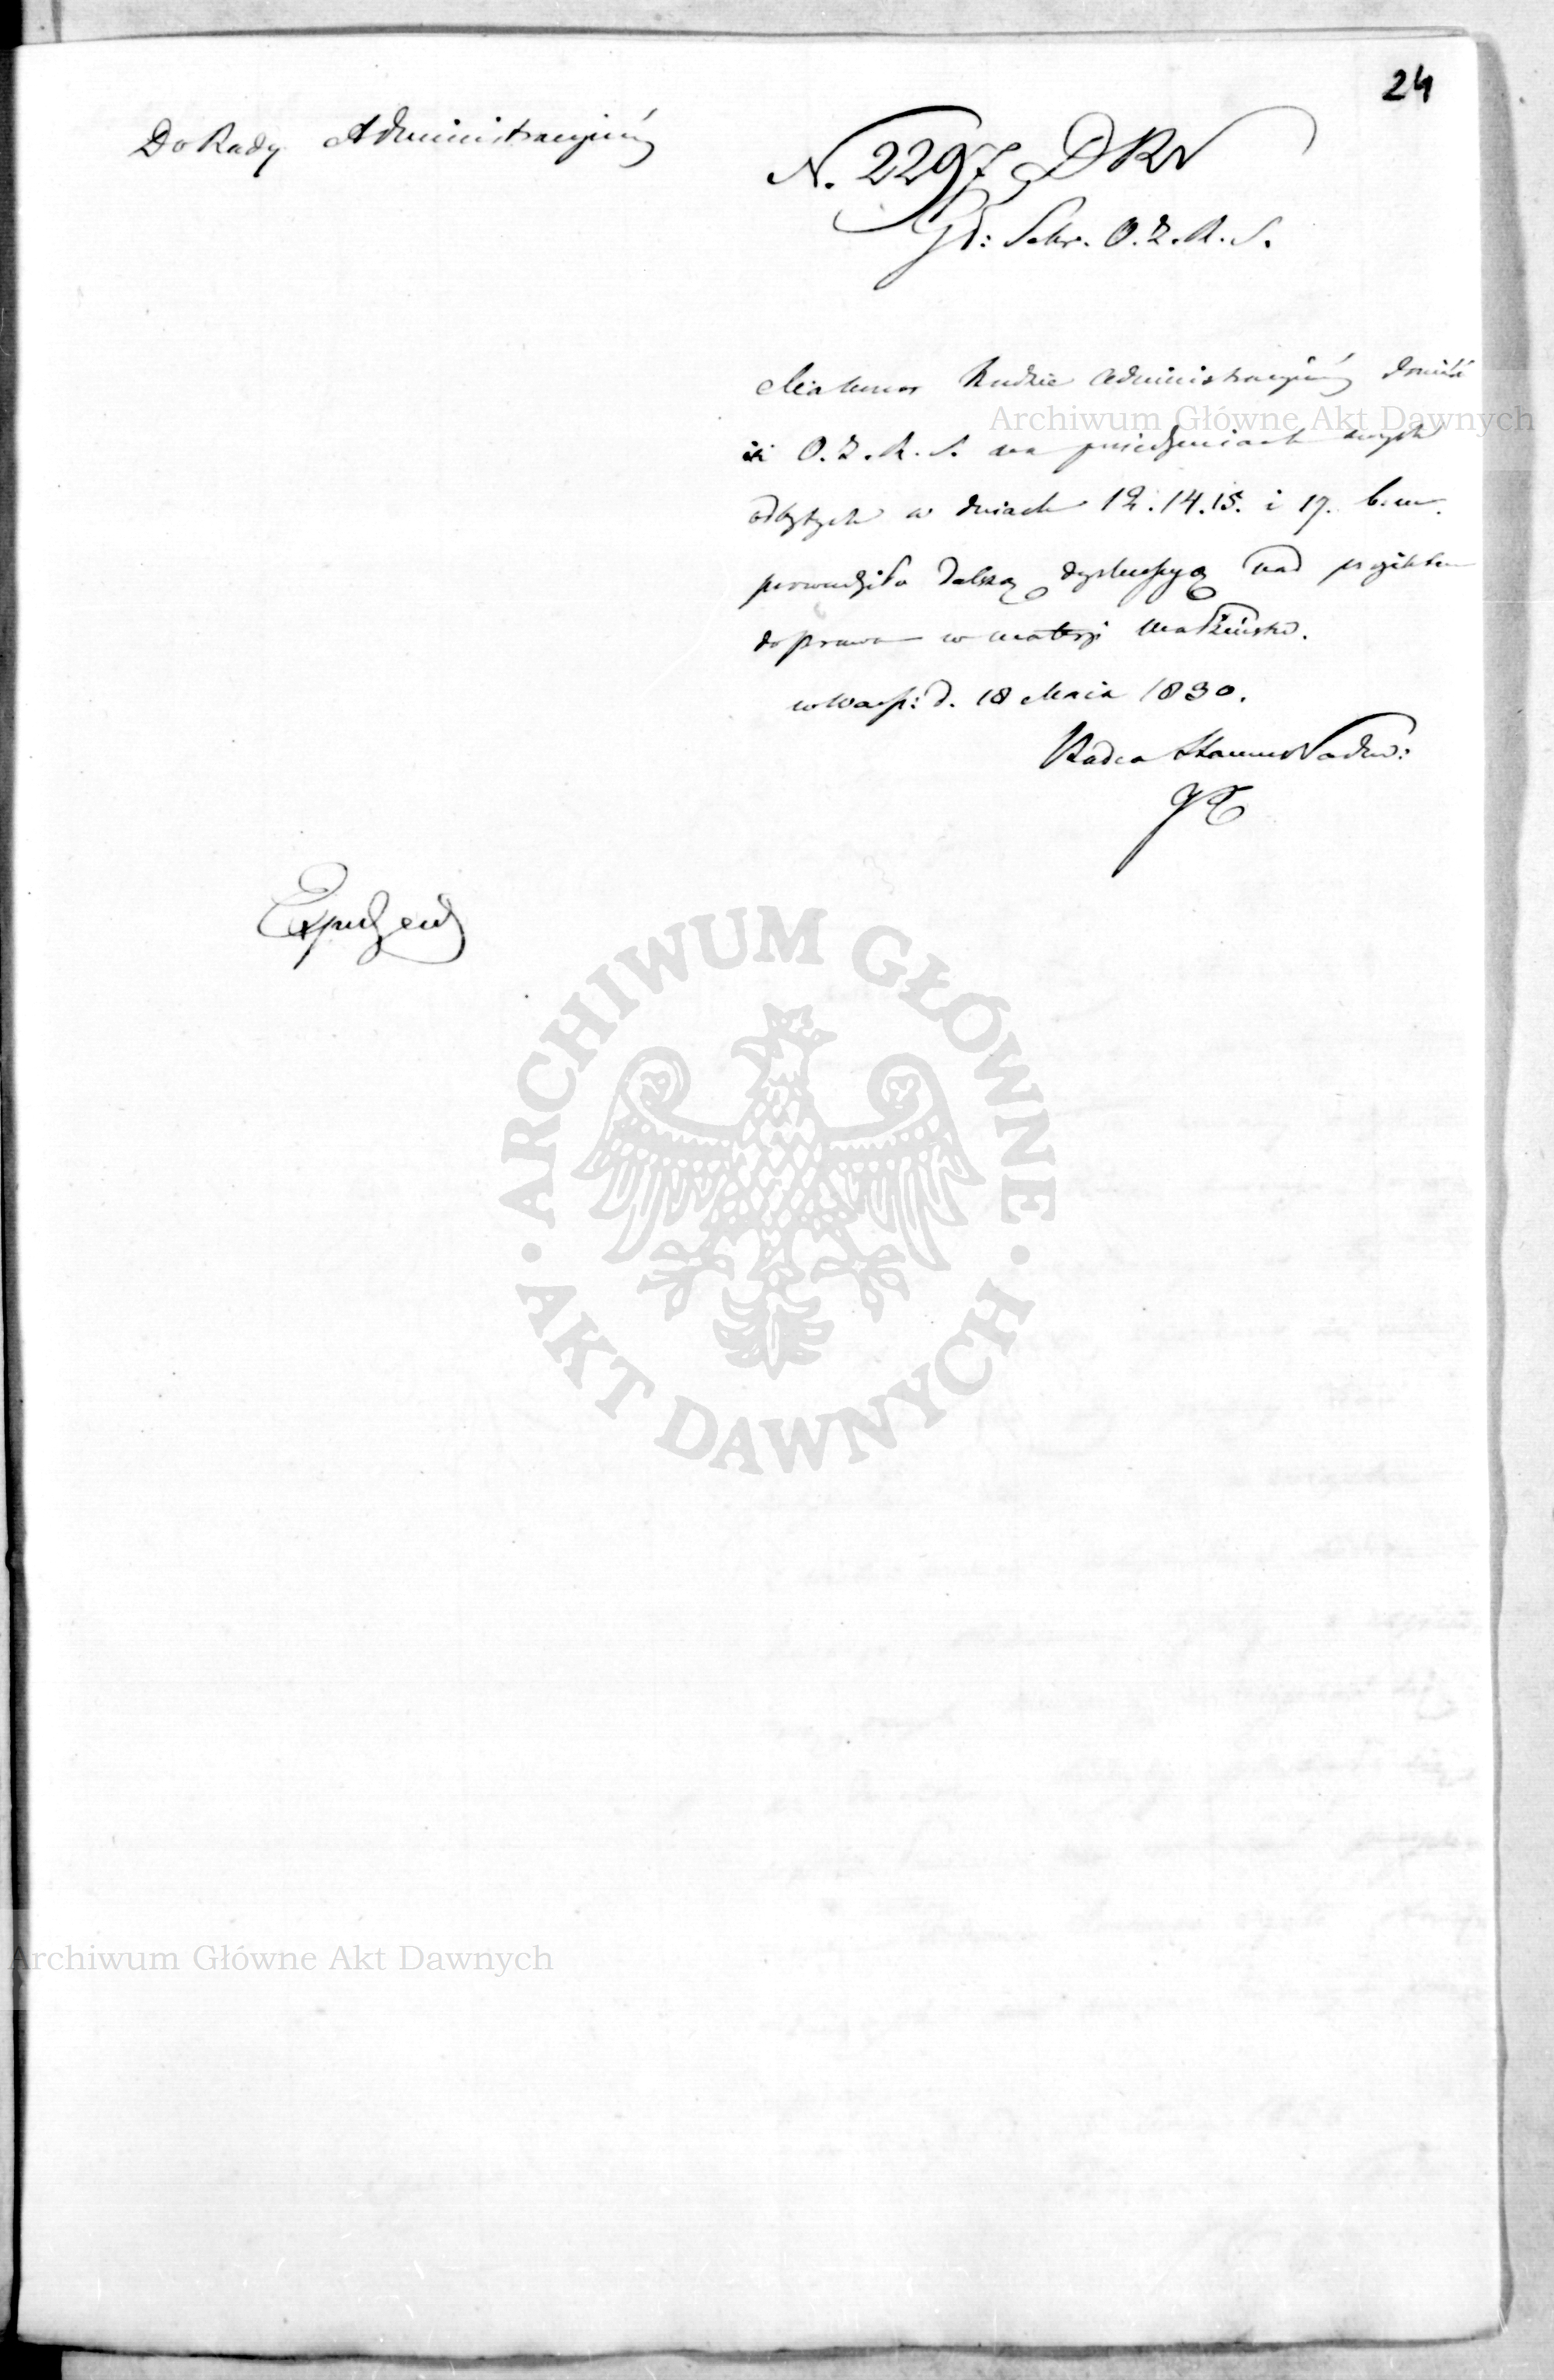 24
Do Rady Administracyiney
N. 2297 D R N
Sekr. O. Z. R. S.
Mam honor Radzie Administracyiney donieść
Archiwum Główne Akt Dawnych
iż O. Z. R. S. na posiedzeniach swych
odbytych w dniach 12. 14. 15. i 17. b. m.
prowadziła dalszą dyskussyą nad projektem
do prawa w materyi małżeńskiey.
w Warsz: d. 18 Maia 1830.
Radca Stanu Nadw:
Expedyend
ARCHIWUM GŁÓWNE
AKT DAWNYCH
Archiwum Główne Akt Dawnych